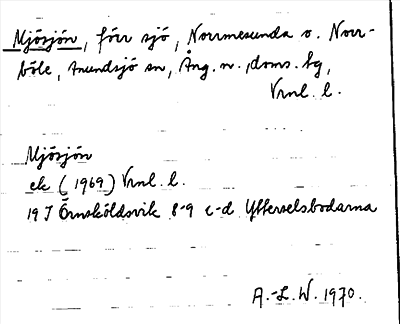 Mjösjön, förr sjö, Norrmesunda o. Norr-
böle, Anundsjö sn, Ång. n., doms. bg,
Vrnl. l.
Mjösjön
ek (1969) Vrnl. l.
19 J Örnsköldsvik 8-9 c-d Ytterselsbodarna
A.-L. W. 1970.